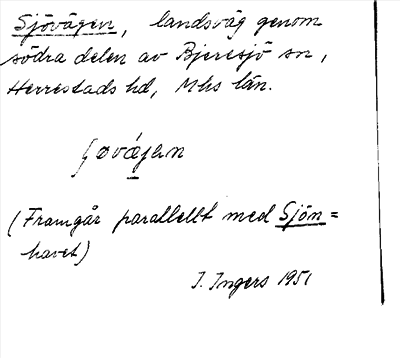 Sjövägen, landsväg genom
södra delen av Bjeresjö sn,
Herrestads hd, Mhs län.
ʃøvǽjæn
(Framgår parallellt med Sjön =
havet)
I. Ingers 1951